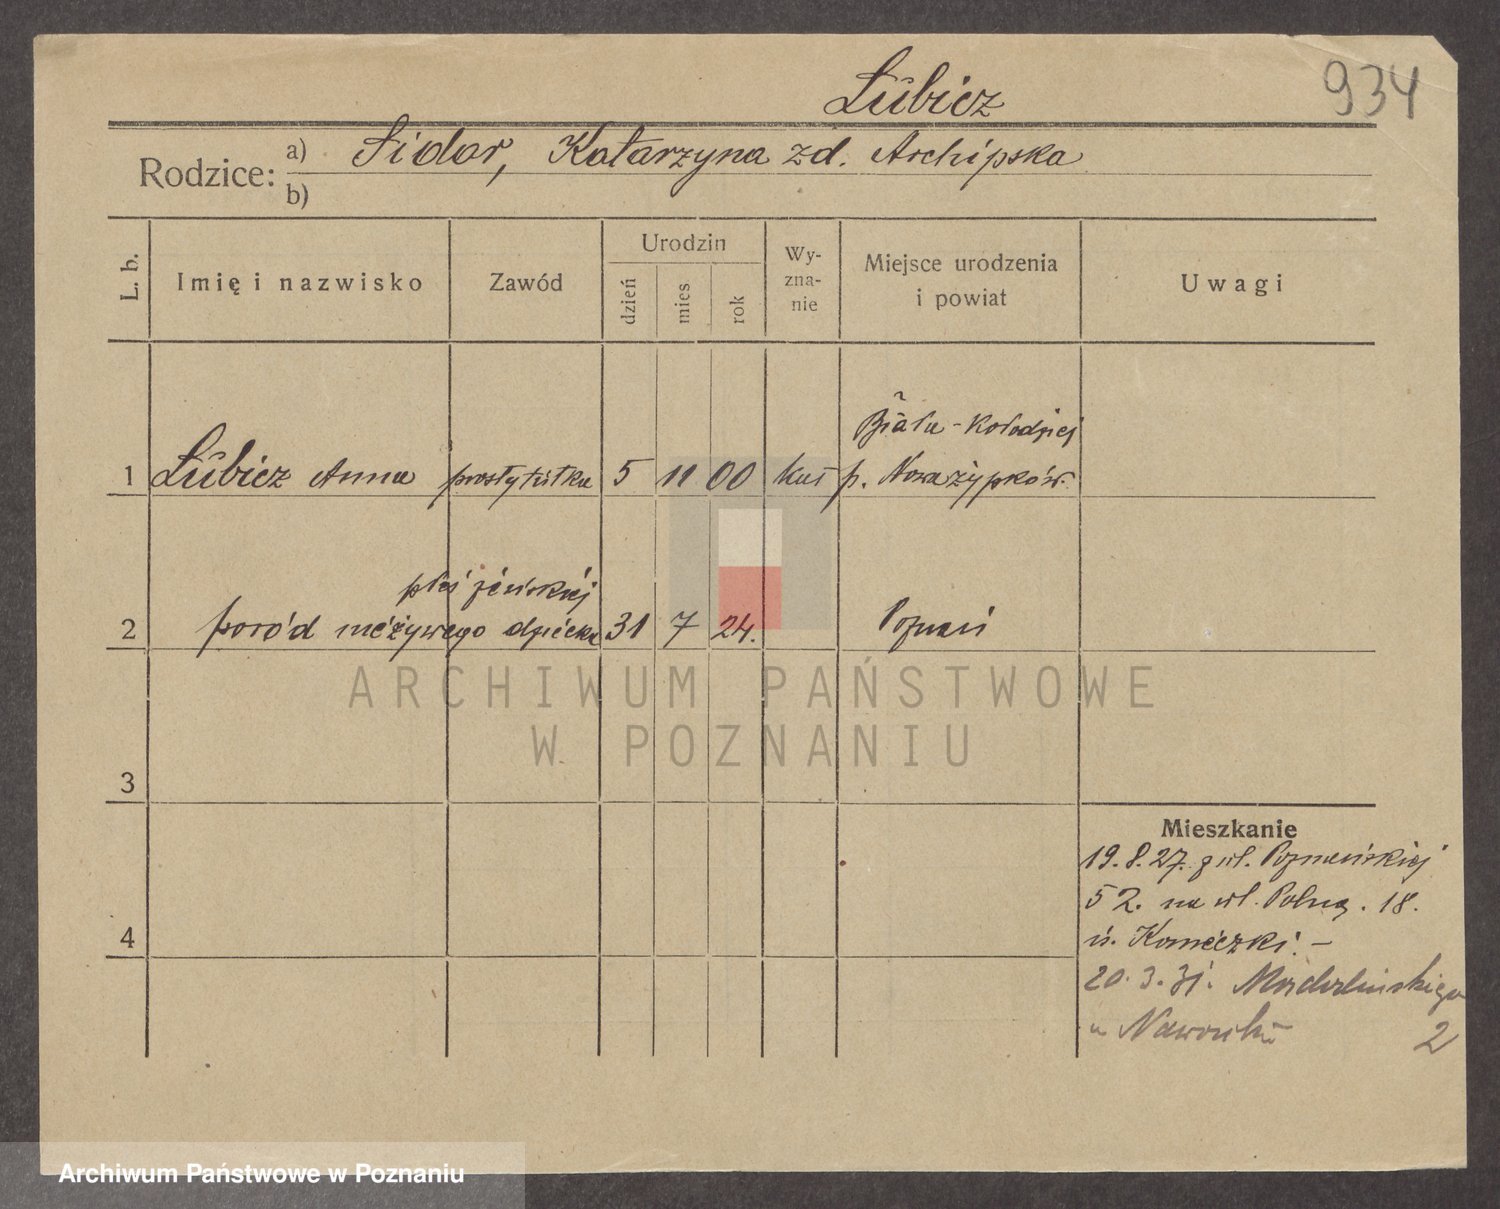 Lubicz
934
Rodzice: a) Sidor, Katarzyna zd. Archipska
b)
L. b.
Imię i nazwisko
Zawód
Urodzin
dzień
mies
rok
Wy-
zna-
nie
Miejsce urodzenia
i powiat
Uwagi
Biała-Kołodziej
1 Lubicz Anna prostytutka 5 11 00 kat p. Nowazypków.
płci żeńskiej
2 poród nieżywego dziecka 31 7 24. Poznań
ARCHIWUM PAŃSTWOWE
W POZNANIU
3
Mieszkanie
19.8.27. z ul. Poznańskiej
52. na ul. Polną. 18.
4
u. Konieczki. –
20.3.31. Madalińskiego
u 2
Archiwum Państwowe w Poznaniu